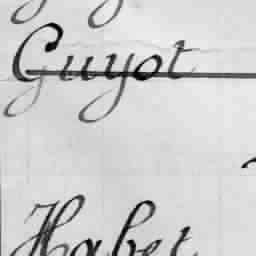 Guyot
Habet